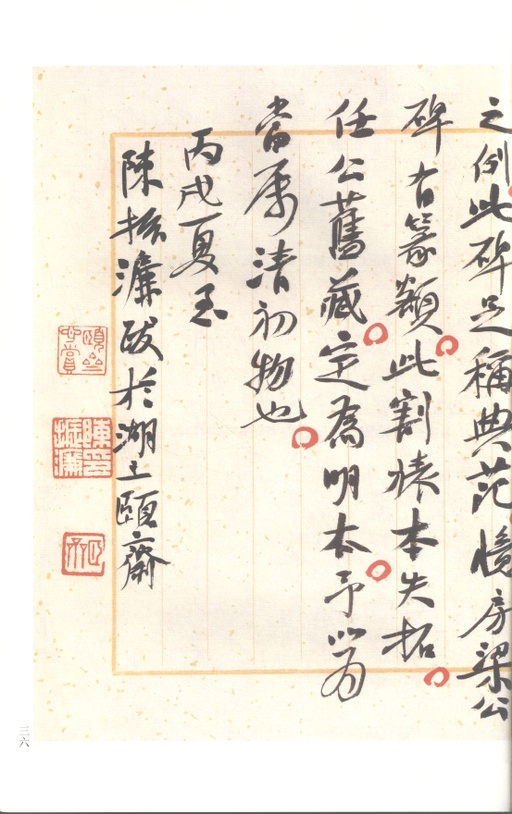 之例此碑足稱典范憶房梁公
碑有篆額此割裱本失拓
任公舊藏定為明本予以為
當属清初物也
丙戌夏至
陳振濂跋於湖上頤齋
陳印振濂
三六